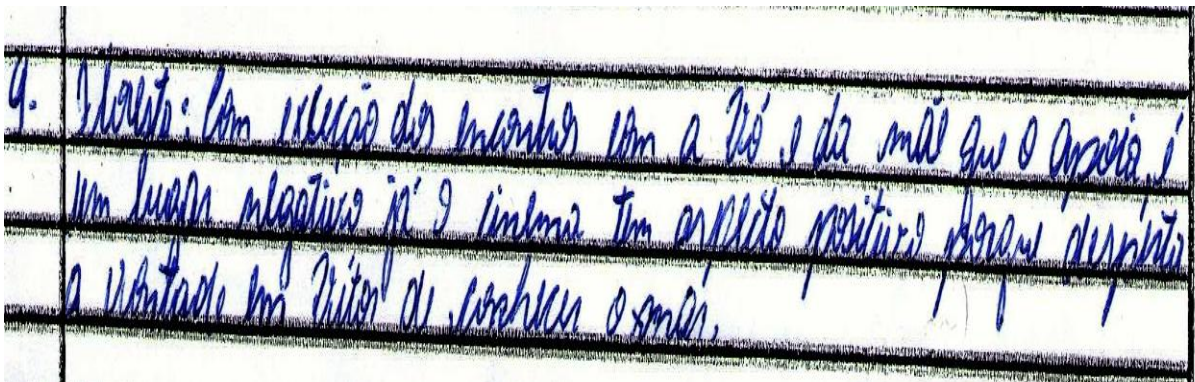 9. Floresta: Com exceção dos encontros com a Vó e da mãe que o apoia, é
um lugar negativo já o cinema tem aspecto positivo porque desperta
a vontade em Vitor de conhecer o mar.